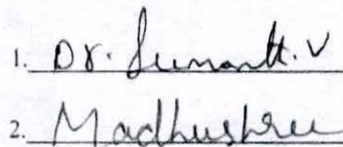 1. Dr. Sumanth. V
2. Madhushree